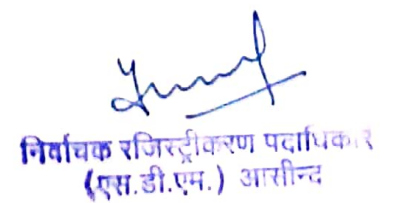 निर्वाचक रजिस्ट्रीकरण पदाधिकार
(एस.डी.एम.) आसीन्द